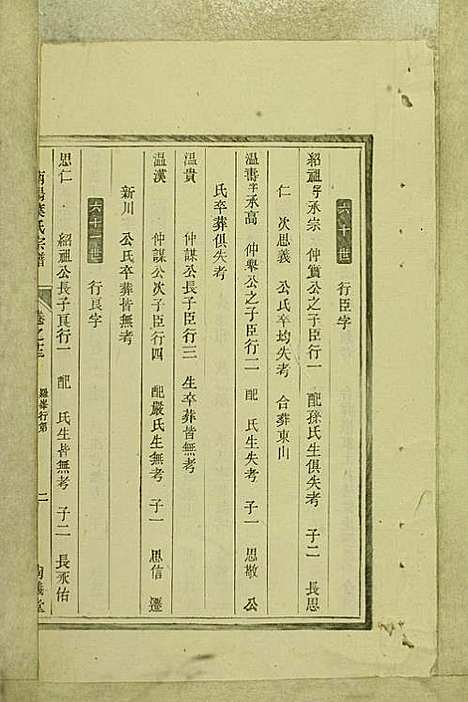 六十世 行臣字
紹祖字承宗 仲賓公之子臣行一 配孫氏生俱失考 子二 長思
仁 次思義 公氏卒均失考 合葬東山
温壽字承高 仲舉公之子臣行二 配 氏生失考 子一 思敬 公
氏卒葬俱失考
温貴 仲謀公長子臣行三 生卒葬皆無考
温漢 仲謀公次子臣行四 配嚴氏生無考 子一 思信 遷
新川 公氏卒葬皆無考
六十一世 行良字
思仁 紹祖公長子良行一 配 氏生皆無考 子二 長永佑
南陽葉氏宗譜 卷之三 行第 二